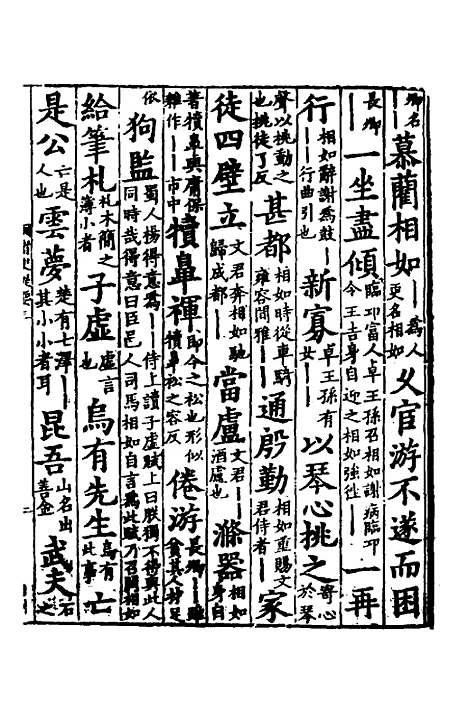 卿名慕藺相如｜為人更名相如乂宦游不遂而困
長卿｜一坐盡傾臨邛富人卓王孫召相如謝病臨邛令王吉身自迎之相如強往｜｜｜一再
行相如辭謝為鼓｜｜｜行曲引也新寡卓王孫有女｜｜以琴心挑之寄心於琴
聲以挑動之也挑徒了反甚都相如時從車騎雍容閒雅｜｜通殷勤相如重賜文君侍者｜｜｜家
徒四壁立文君奔相如馳歸成都｜｜當盧文君｜｜酒盧也滌器相如身自
著犢鼻與庸保雜作｜｜市中犢鼻褌即今之松也形似犢鼻松之容反倦游長卿｜｜雖貧其人材足
依狗監蜀人楊得意為｜｜侍上讀子虛賦上曰朕獨不得與此人同時哉得意曰臣邑人司馬相如自言為此賦乃召問相如
給筆札札木簡之薄小者子虛虛言也烏有先生烏有此事亡
是公亡是人也雲夢楚有七澤｜｜其小小者耳昆吾山名出善金武夫石